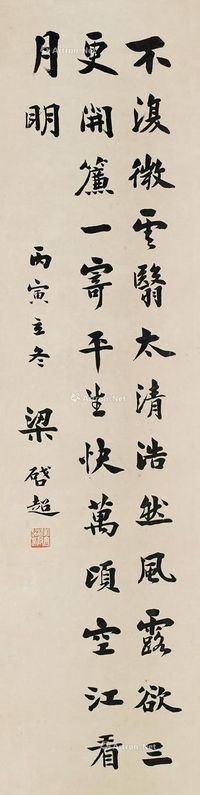 不復微雲翳太清浩然風露欲三
更開簾一寄平生快萬頃空江看
月明
丙寅立冬 梁啓超